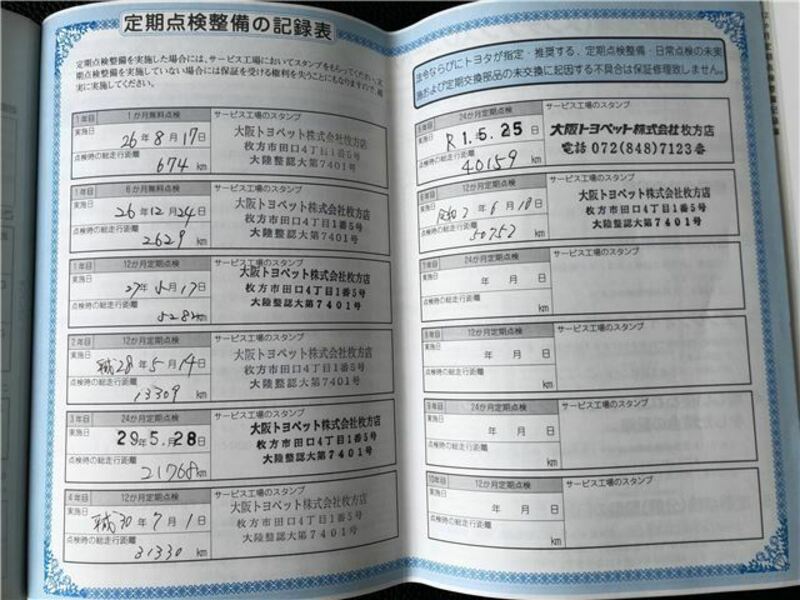 定期点検整備の記録表
定期点検整備を実施した場合には、サービス工場においてスタンプをもらってください。定
期点検整備を実施していない場合には保証を受ける権利を失うことにもなりますので、確
実に実施してください。
1年目 1か月無料点検 サービス工場のスタンプ
実施日
26年8月17日
点検時の総走行距離
674 km
大阪トヨペット株式会社枚方店
枚方市田口4丁目1番5号
大陸整認大第7401号
1年目 6か月無料点検 サービス工場のスタンプ
実施日
26年12月24日
点検時の総走行距離
2629 km
大阪トヨペット株式会社枚方店
枚方市田口4丁目1番5号
大陸整認大第7401号
1年目 12か月定期点検 サービス工場のスタンプ
実施日
27年5月17日
点検時の総走行距離
5282 km
大阪トヨペット株式会社枚方店
枚方市田口4丁目1番5号
大陸整認大第7401号
2年目 12か月定期点検 サービス工場のスタンプ
実施日
28年5月14日
点検時の総走行距離
13309 km
大阪トヨペット株式会社枚方店
枚方市田口4丁目1番5号
大陸整認大第7401号
3年目 24か月定期点検 サービス工場のスタンプ
実施日
29年5月28日
点検時の総走行距離
21768 km
大阪トヨペット株式会社枚方店
枚方市田口4丁目1番5号
大陸整認大第7401号
4年目 12か月定期点検 サービス工場のスタンプ
実施日
30年7月1日
点検時の総走行距離
31330 km
大阪トヨペット株式会社枚方店
枚方市田口4丁目1番5号
大陸整認大第7401号
法令ならびにトヨタが指定・推奨する、定期点検整備・日常点検の未実
施および定期交換部品の未交換に起因する不具合は保証修理致しません。
5年目 24か月定期点検 サービス工場のスタンプ
実施日
R1.5.25日
点検時の総走行距離
40159 km
大阪トヨペット株式会社枚方店
電話 072(848)7123番
6年目 12か月定期点検 サービス工場のスタンプ
実施日
令和2年6月18日
点検時の総走行距離
50752 km
大阪トヨペット株式会社枚方店
枚方市田口4丁目1番5号
大陸整認大第7401号
7年目 24か月定期点検 サービス工場のスタンプ
実施日
年 月 日
点検時の総走行距離
km
8年目 12か月定期点検 サービス工場のスタンプ
実施日
年 月 日
点検時の総走行距離
km
9年目 24か月定期点検 サービス工場のスタンプ
実施日
年 月 日
点検時の総走行距離
km
10年目 12か月定期点検 サービス工場のスタンプ
実施日
年 月 日
点検時の総走行距離
km